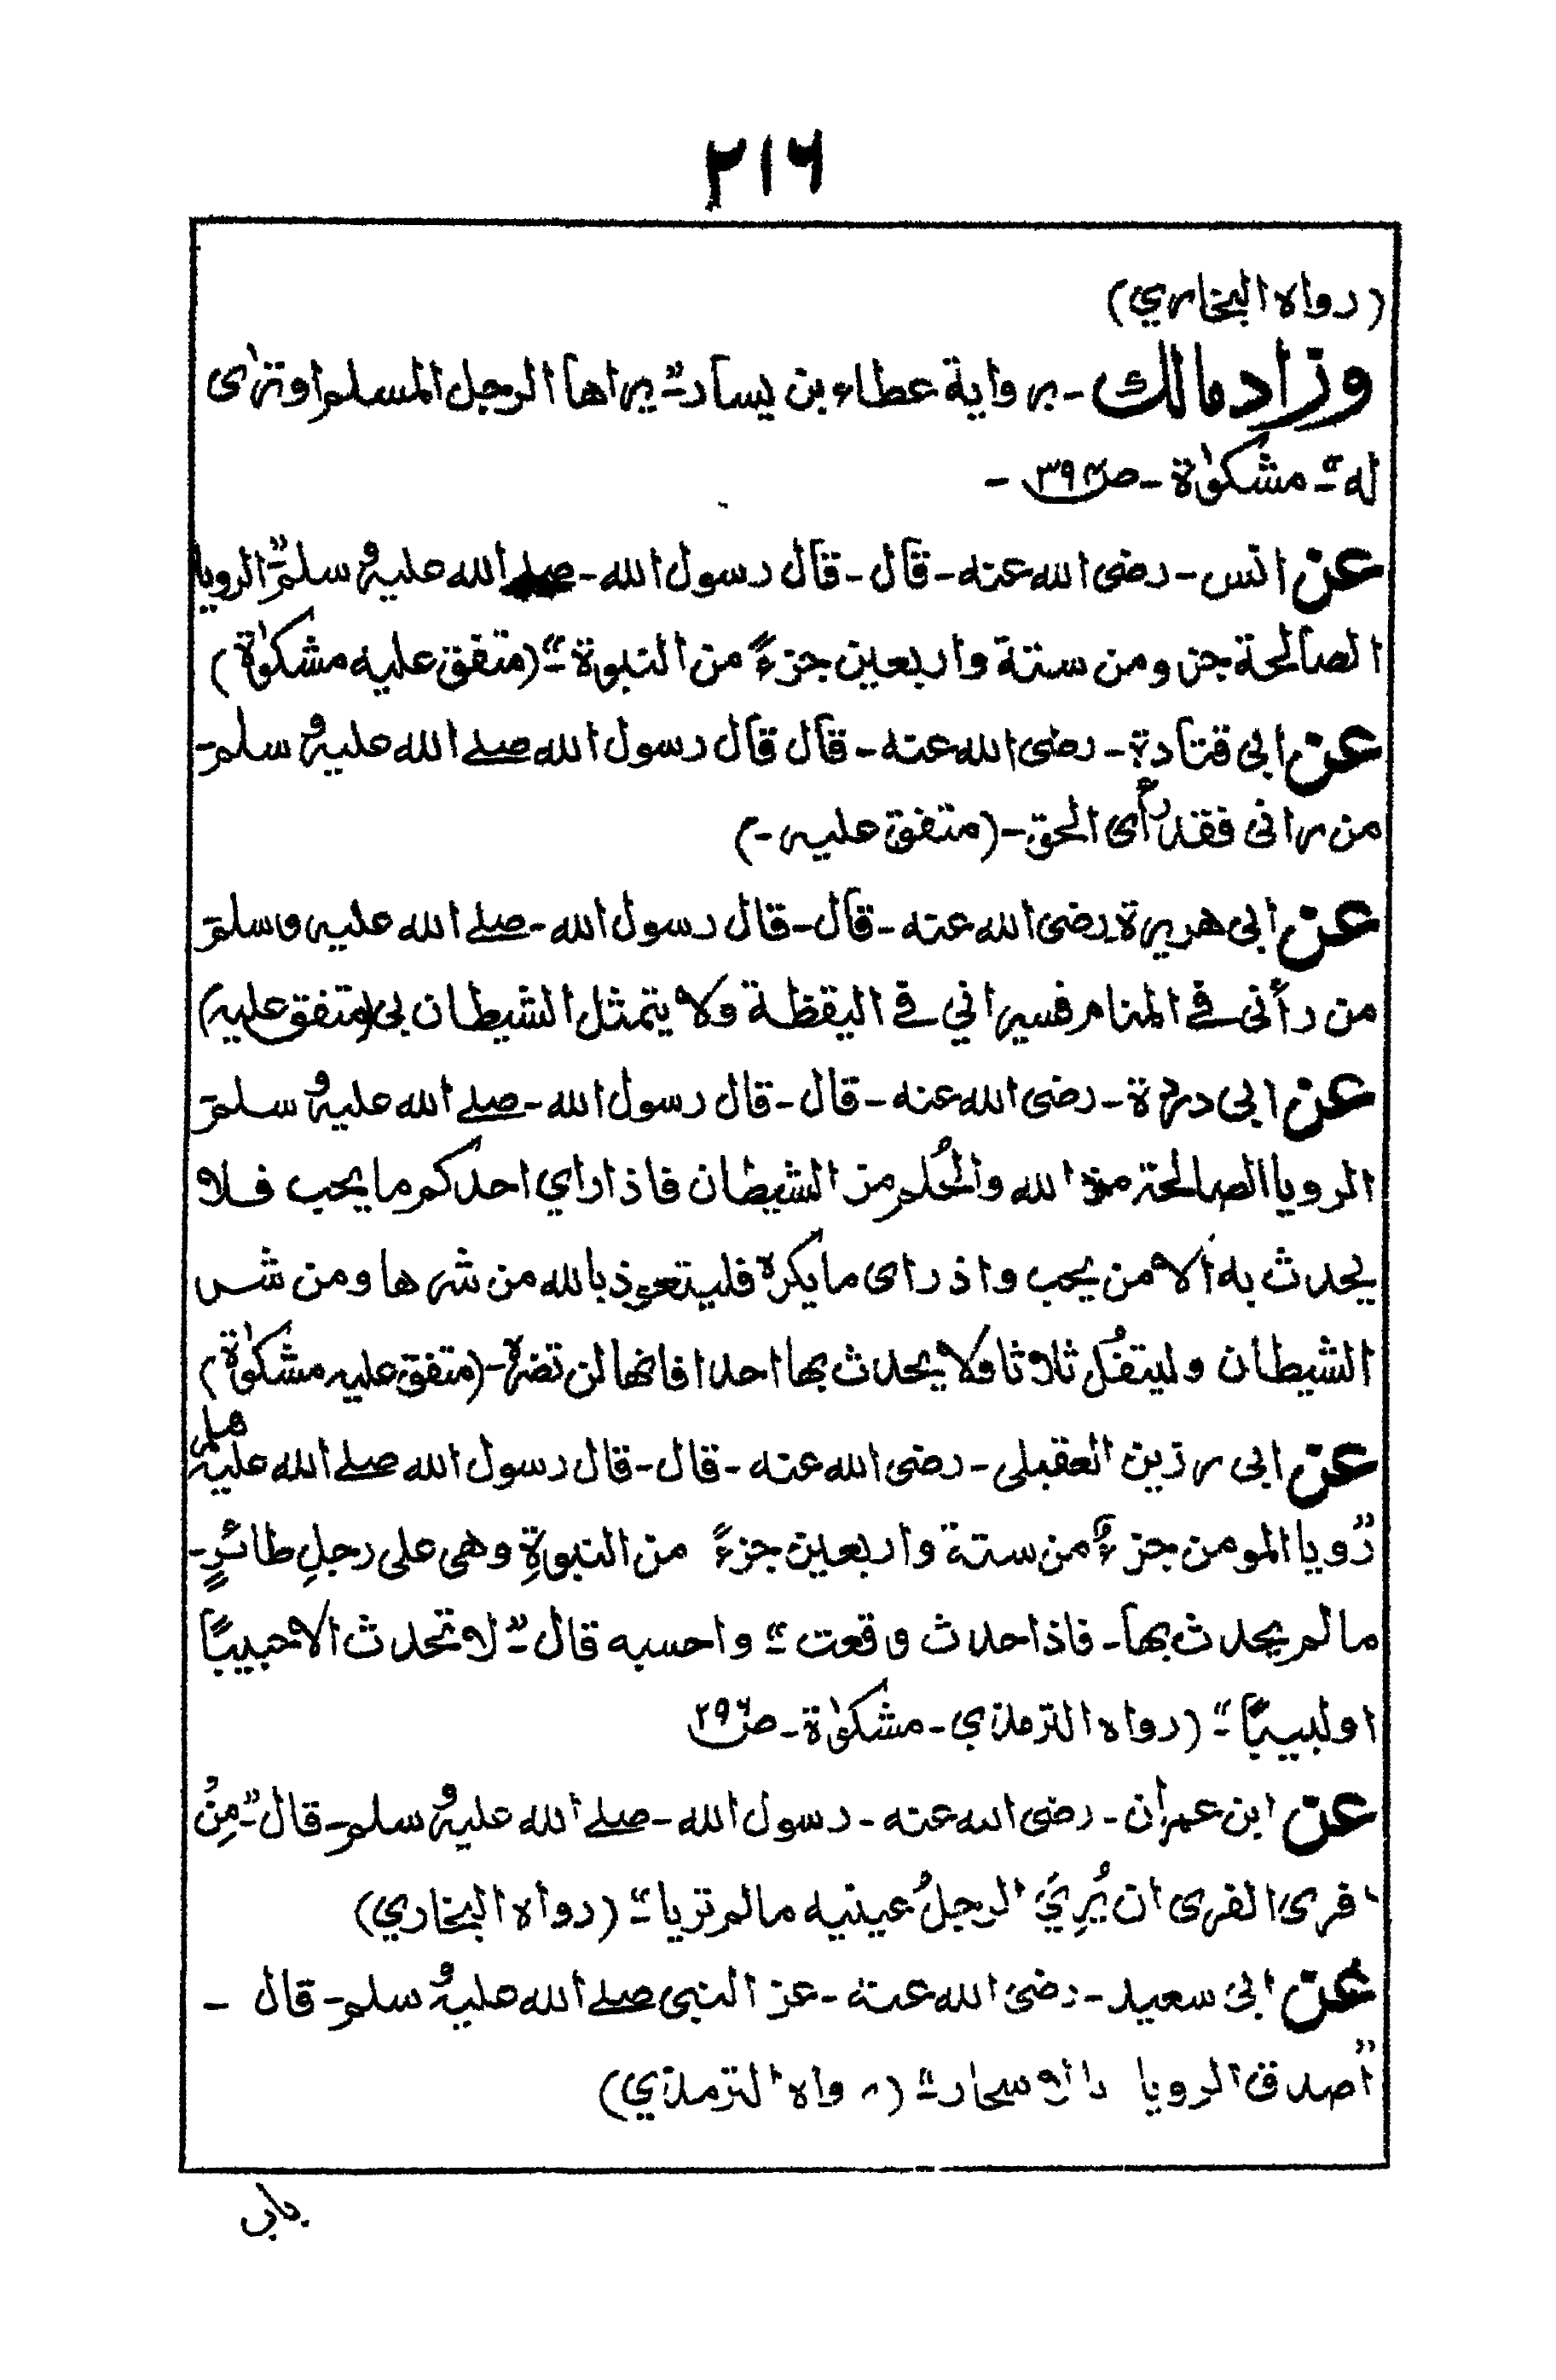 ۲۱۶
(رواه البخاري)
وزاد مالك - برواية عطاء بن يسار "يراها الرجل المسلم او ترى
له" - مشكوٰة - ص ۳۹۴ -
عن انس - رضى الله عنه - قال - قال رسول الله - صلے الله عليه و سلم "الرويا
الصالحة جزو من ستة واربعين جزءً من النبوة" - (متفق عليه مشكوٰة)
عن ابى قتادة - رضى الله عنه - قال قال رسول الله صلے الله عليه و سلم -
من رانى فقد رأى الحق - (متفق عليه -)
عن ابى هريرة رضى الله عنه - قال - قال رسول الله - صلے الله عليه وسلم
من رأنى في المنام فسيراني في اليقظة ولا يتمثل الشيطان بى (متفق عليه)
عن ابى درة - رضى الله عنه - قال - قال رسول الله - صلے الله عليه و سلم
الرويا الصالحة من الله والحُلم من الشيطان فاذا راي احدكم ما يحب فلا
يحدث به الا من يحب واذ راى ما يكره فليتعوذ بالله من شرها ومن شر
الشيطان وليتفُل ثلاثا ولا يحدث بها احدا فانها لن تضره - (متفق عليه مشكوٰة)
عن ابى رزين العقبلى - رضى الله عنه - قال - قال رسول الله صلے الله عليه وسلم
"رُويا المومن جزءٌ من ستة واربعين جزءً من النبوةِ وهى على رجلِ طائرٍ -
ما لم يحدث بها - فاذا حدث وقعت" - واحسبه قال - "لا تحدث الا حبيبًا
او لبيبًا" - (رواه الترمذي - مشكوٰة - ص ۳۹۶
عن ابن عمران - رضى الله عنه - رسول الله - صلے الله عليه و سلم - قال - "مِنُ
افرى الفرى ان يُرِيَ الرجلُ عينيه ما لم تريا" - (رواه البخاري)
عن ابى سعيد - رضى الله عنه - عن النبى صلے الله عليه و سلم - قال -
"اصدق الرويا بالاسحار" - (رواه الترمذي)
باب